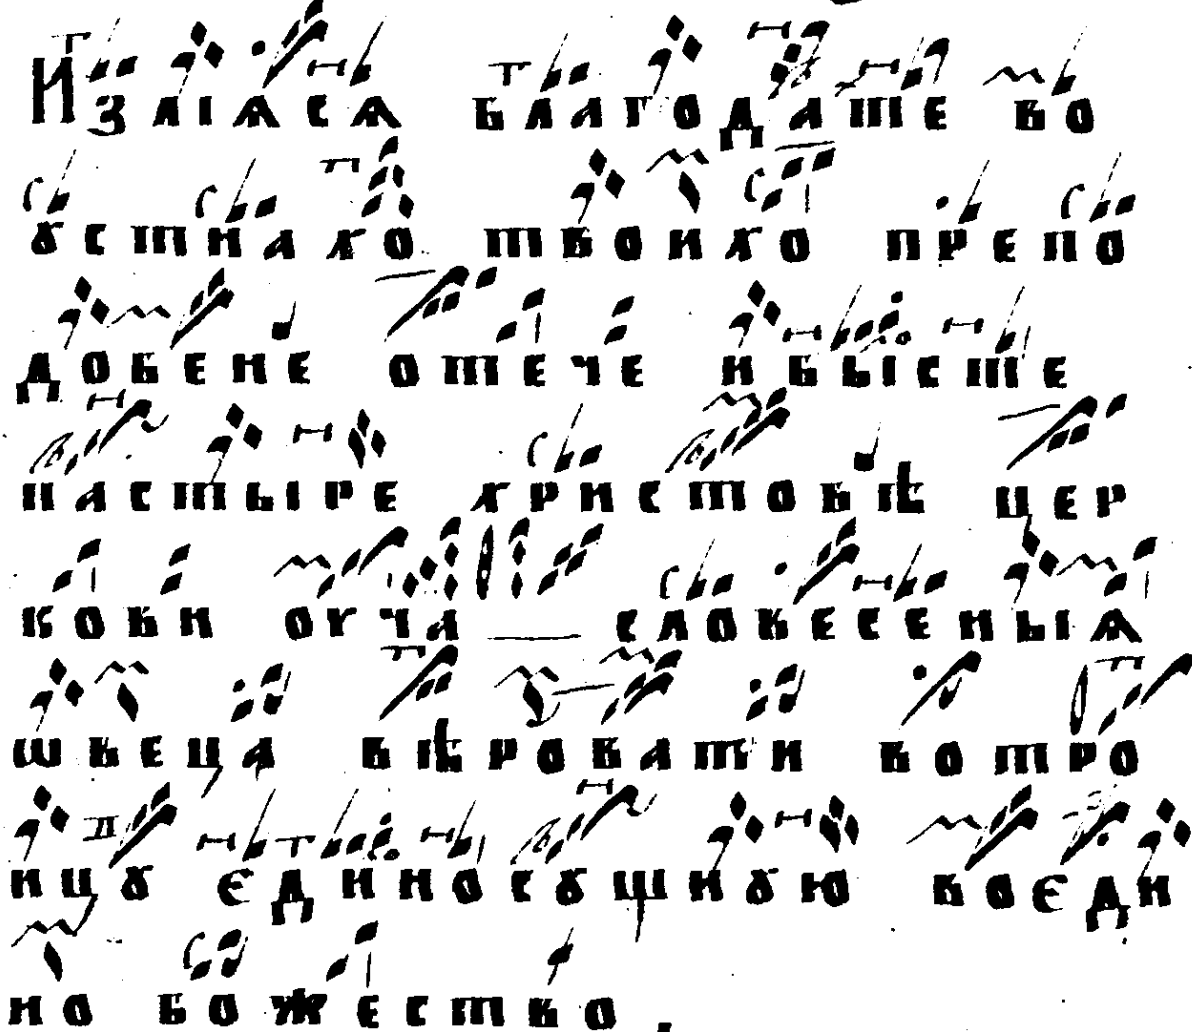 Изліѧсѧ благодате во
ꙋстнахо твоихо препо
добене отече и бысте
пастыре христовѣ цер
кови оуча словесеныѧ
ѡвеца вѣровати вотро
ицꙋ єдиносꙋщнꙋю воєди
но божество